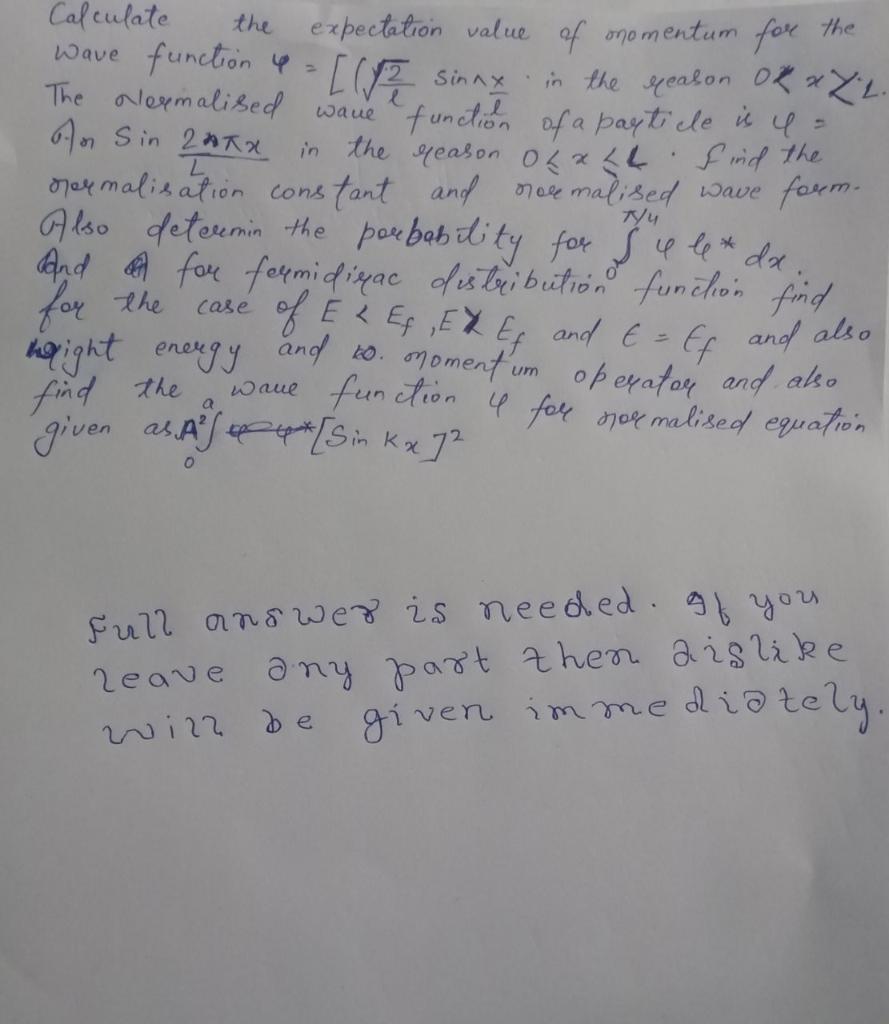 Calculate the expectation value of momentum for the
wave function φ = [(√2/l sin πx/l in the reason 0< x < L.
The Normalised wave function of a particle is φ =
An Sin 2nπx/L in the reason 0≤ x ≤L. find the
normalisation constant and normalised wave form.
Also determin the porbability for ∫₀^π/4 φ φ* dx.
And for fermidirac distribution function find
for the case of E < Ef, E > Ef and E = Ef and also
wright energy and momentum operator and also
find the wave function φ for normalised equation
given as A² ∫₀^a [Sin Kx]²
Full answer is needed. If you
leave any part then dislike
will be given immediately.